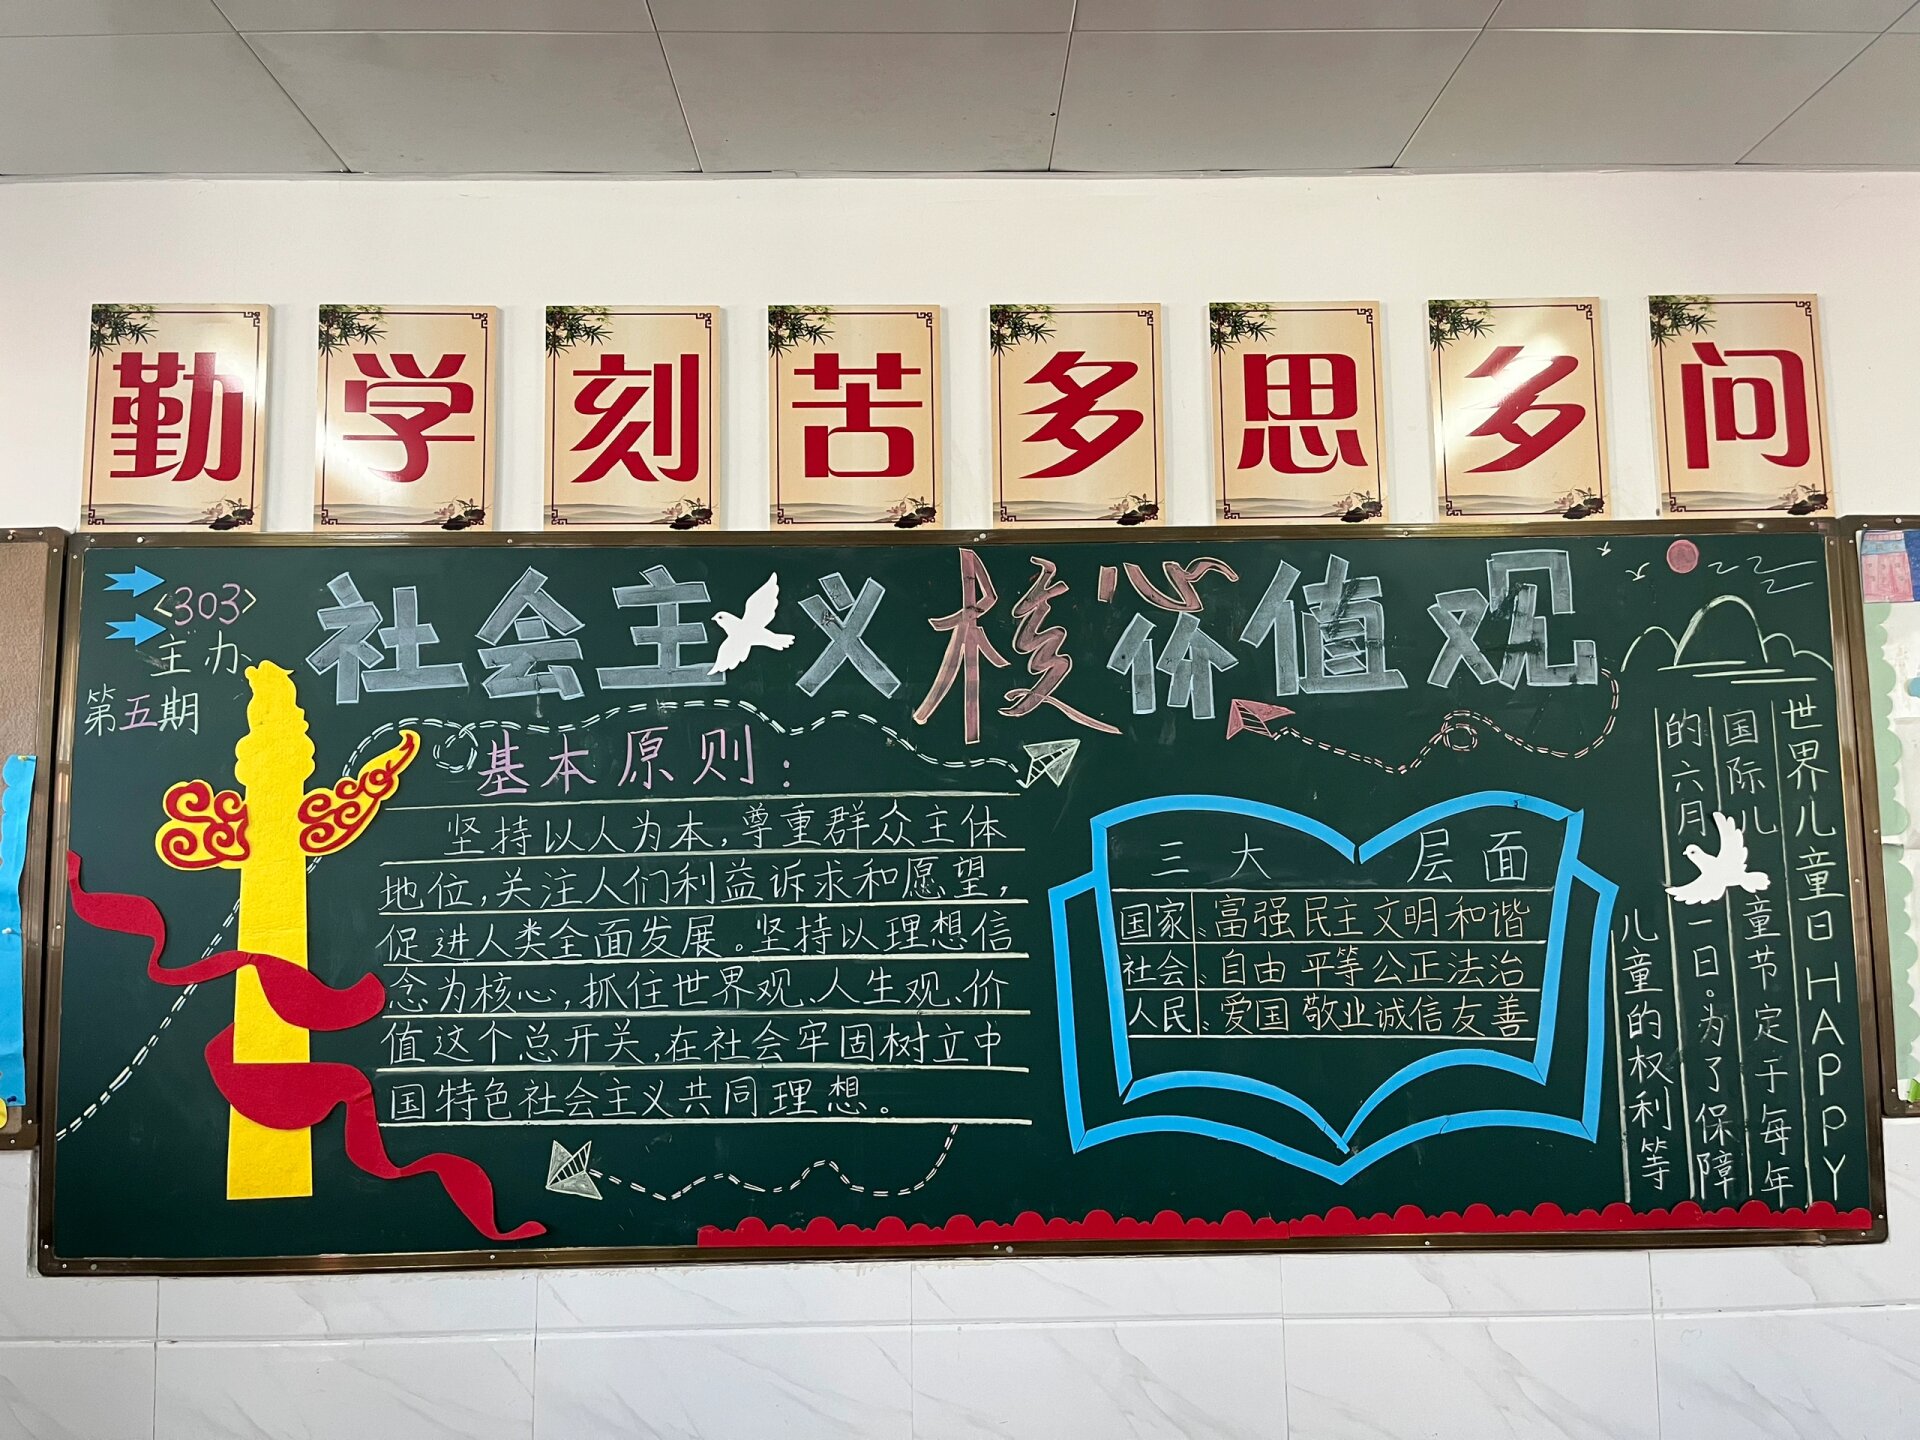 勤学刻苦多思多问
<303>
主办
第五期
社会主义核心价值观
基本原则：
坚持以人为本，尊重群众主体
地位，关注人们利益诉求和愿望，
促进人类全面发展。坚持以理想信
念为核心，抓住世界观、人生观、价
值这个总开关，在社会牢固树立中
国特色社会主义共同理想。
三大层面
国家：富强民主文明和谐
社会：自由平等公正法治
人民：爱国敬业诚信友善
世界儿童日HAPPY
国际儿童节定于每年
的六月一日。为了保障
儿童的权利等